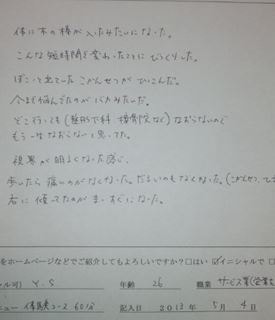 体に木の棒が入ったみたいになった。
こんな短時間で変わったことにびっくりした。
ぽこって出ていたこかんせつがひっこんだ。
今まで悩んできたのがバカみたいだ。
どこ行っても(整形外科 接骨院など)なおらないので
もう一生なおらないと思ってた。
視界が明るくなった感じ。
歩いたら痛いのがなくなった。だるいのもなくなった。(こかんせつ、ひざ
右に傾いてたのがまっすぐになった。
をホームページなどでご紹介してもよろしいですか?□はい ☑イニシャルで □
ャル可) Y.S 年齢 26 職業 サービス業(営業
ニュー 体験コース 60分 記入日 2013年 5月 4日